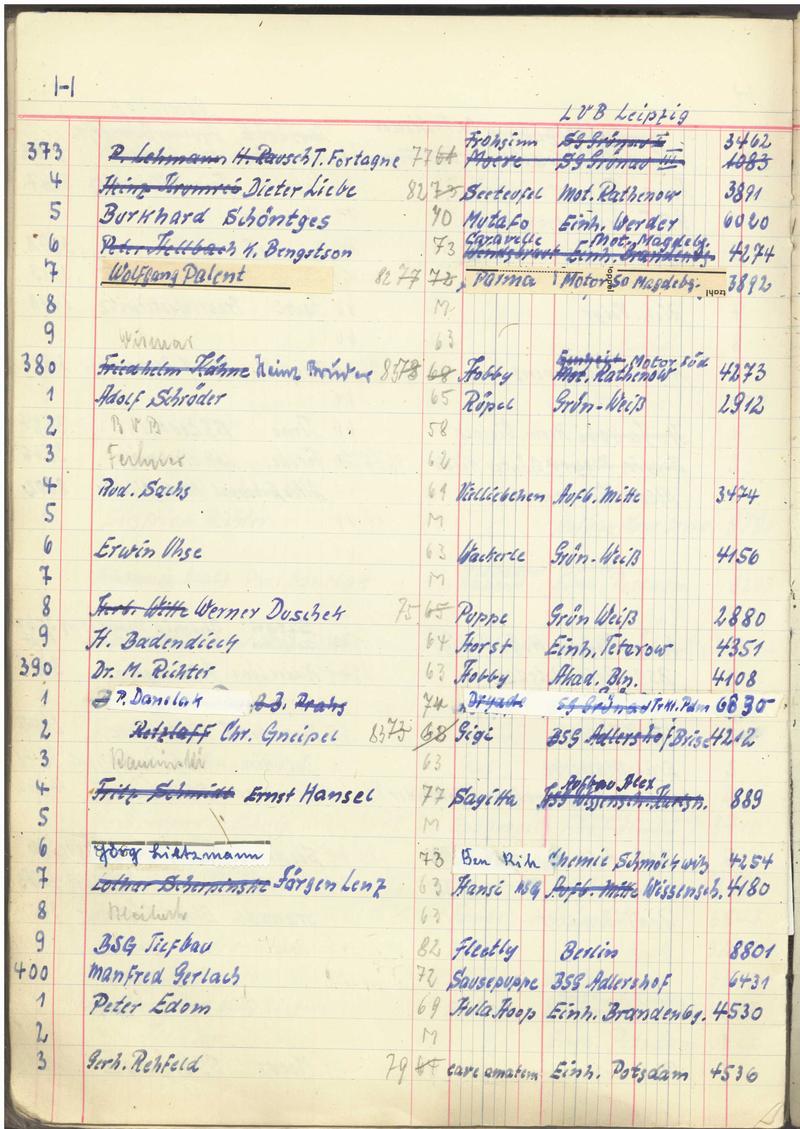 H
LVB Leipzig
Frohsinn SG Grünau II 3462
373 P. Lehmann H. Rausch T. Fortagne 77 61 Moere SG Grünau III 1083
4 Heinz Krumrei Dieter Liebe 82 75 Seeteufel Mot. Rathenow 3891
5 Burkhard Schöntges 70 Mutafo Einh. Werder 6020
Caravelle Mot. Magdebg.
6 Peter Hellbach K. Bengstson 73 Einh. Brandenbg. 4274
7 Wolfgang Palent 82 77 72 Parma Motor So Magdebg. 3892
8 M
9 Wismar 63
Einheit Motor Süd
380 Friedhelm Hähne Heinz Brüder 83 78 68 Hobby Mot. Rathenow 4273
1 Adolf Schröder 65 Röpel Grün-Weiß 2912
2 BVB 58
3 62
4 Rud. Sachs 61 Vielliebchen Aufb. Mitte 3474
5 M
6 Erwin Uhse 63 Wackerle Grün-Weiß 4156
7 M
8 Herb. Witte Werner Duschek 75 65 Puppe Grün Weiß 2880
9 H. Badendieck 64 Horst Einh. Teterow 4351
390 Dr. M. Richter 63 Hobby Akad. Bln. 4108
1 P. Danelak 74 Dryade SG Grünau Trkl. Pdm 6830
2 Retzlaff Chr. Gneipel 83 73 68 Gigi BSG Adlershof Brise 4212
3 Kaminski 63
Aufbau Alex
4 Fritz Schmidt Ernst Hansel 77 Sagitta 889
5 M
6 Jörg Litzmann 73 Ben Rih Chemie Schmöckwitz 4254
7 Lothar Scherpinski Jürgen Lenz 63 Hansi HSG Aufb. Mitte Wissensch. 4180
8 63
9 BSG Tiefbau 82 Fleetly Berlin 8801
400 Manfred Gerlach 72 Sausepuppe BSG Adlershof 6431
1 Peter Edom 69 Hula Hoop Einh. Brandenbg. 4530
2 M
3 Gerh. Rehfeld 79 care amatem Einh. Potsdam 4536